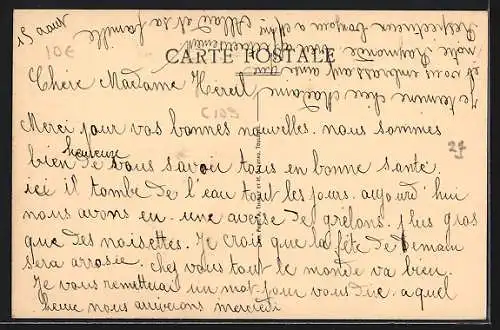 15 aout
10€
CARTE POSTALE
Chère Madame
C109
Merci pour vos bonnes nouvelles. nous sommes
27
heureuse
bien de vous savoir tous en bonne santé.
ici il tombe de l'eau tout les jours. aujourd'hui
nous avons eu une averse de grêlons. plus gros
que des noisettes. Je crois que la fête de Demain
sera arrosée. chez vous tout le monde va bien.
Je vous remettrai un mot pour vous dire a quel
heure nous arriverons mercredi
Je termine chère
et vous embrassant ainsi que
notre Raymonde
Respectueux bonjour a
et sa famille